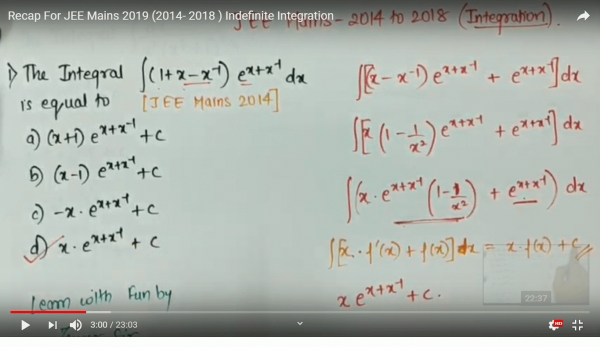 Recap For JEE Mains 2019 (2014- 2018 ) Indefinite Integration
JEE Mains- 2014 to 2018 (Integration).
1) The Integral ∫(1+x-x⁻¹) e^{x+x⁻¹} dx
is equal to [JEE Mains 2014]
a) (x+1) e^{x+x⁻¹} + c
b) (x-1) e^{x+x⁻¹} + c
c) -x · e^{x+x⁻¹} + c
d) x · e^{x+x⁻¹} + c
Learn with Fun by
∫[(x-x⁻¹) e^{x+x⁻¹} + e^{x+x⁻¹}] dx
∫[x (1-1/x²) e^{x+x⁻¹} + e^{x+x⁻¹}] dx
∫(x · e^{x+x⁻¹} (1-1/x²) + e^{x+x⁻¹}) dx
∫[x · f'(x) + f(x)] dx = x · f(x) + c
x e^{x+x⁻¹} + c.
22:37
3:00 / 23:03
HD